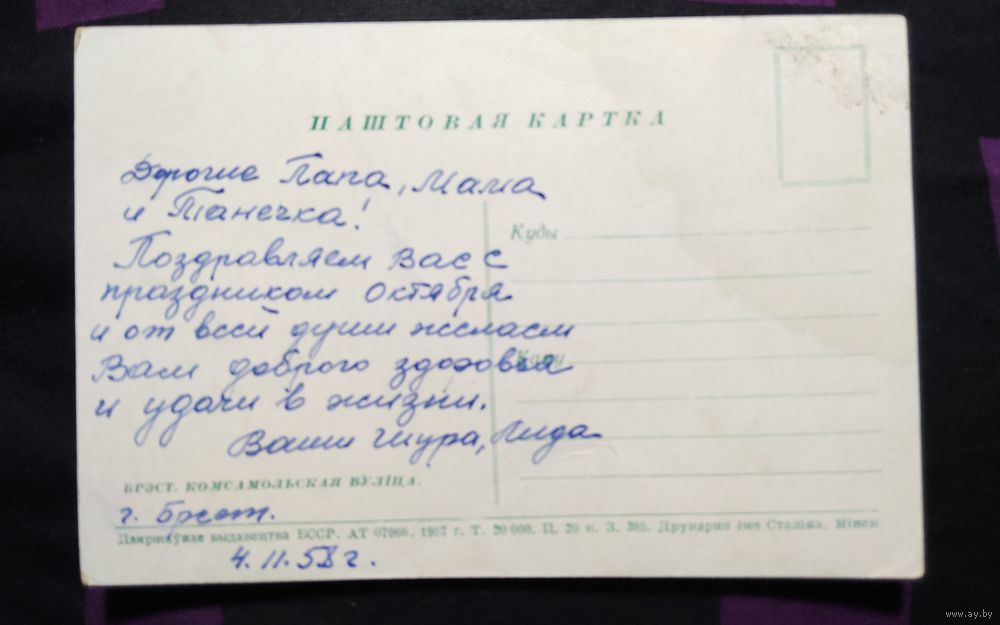 ПАШТОВАЯ КАРТКА
Дорогие Папа, Мама
и Танечка!
Куды
Поздравляем Вас с
праздником Октября
и от всей души желаем
Каму
Вам доброго здоровья
и удачи в жизни.
Ваши Шура, Лида
БРЭСТ. КОМСАМОЛЬСКАЯ ВУЛІЦА.
г. Брест.
Дзяржаўнае выдавецтва БССР. АТ 07966. 1957 г. Т. 20 000. Ц. 20 к. З. 385. Друкарня імя Сталіна. Мінск
4.11.58 г.
www.ay.by